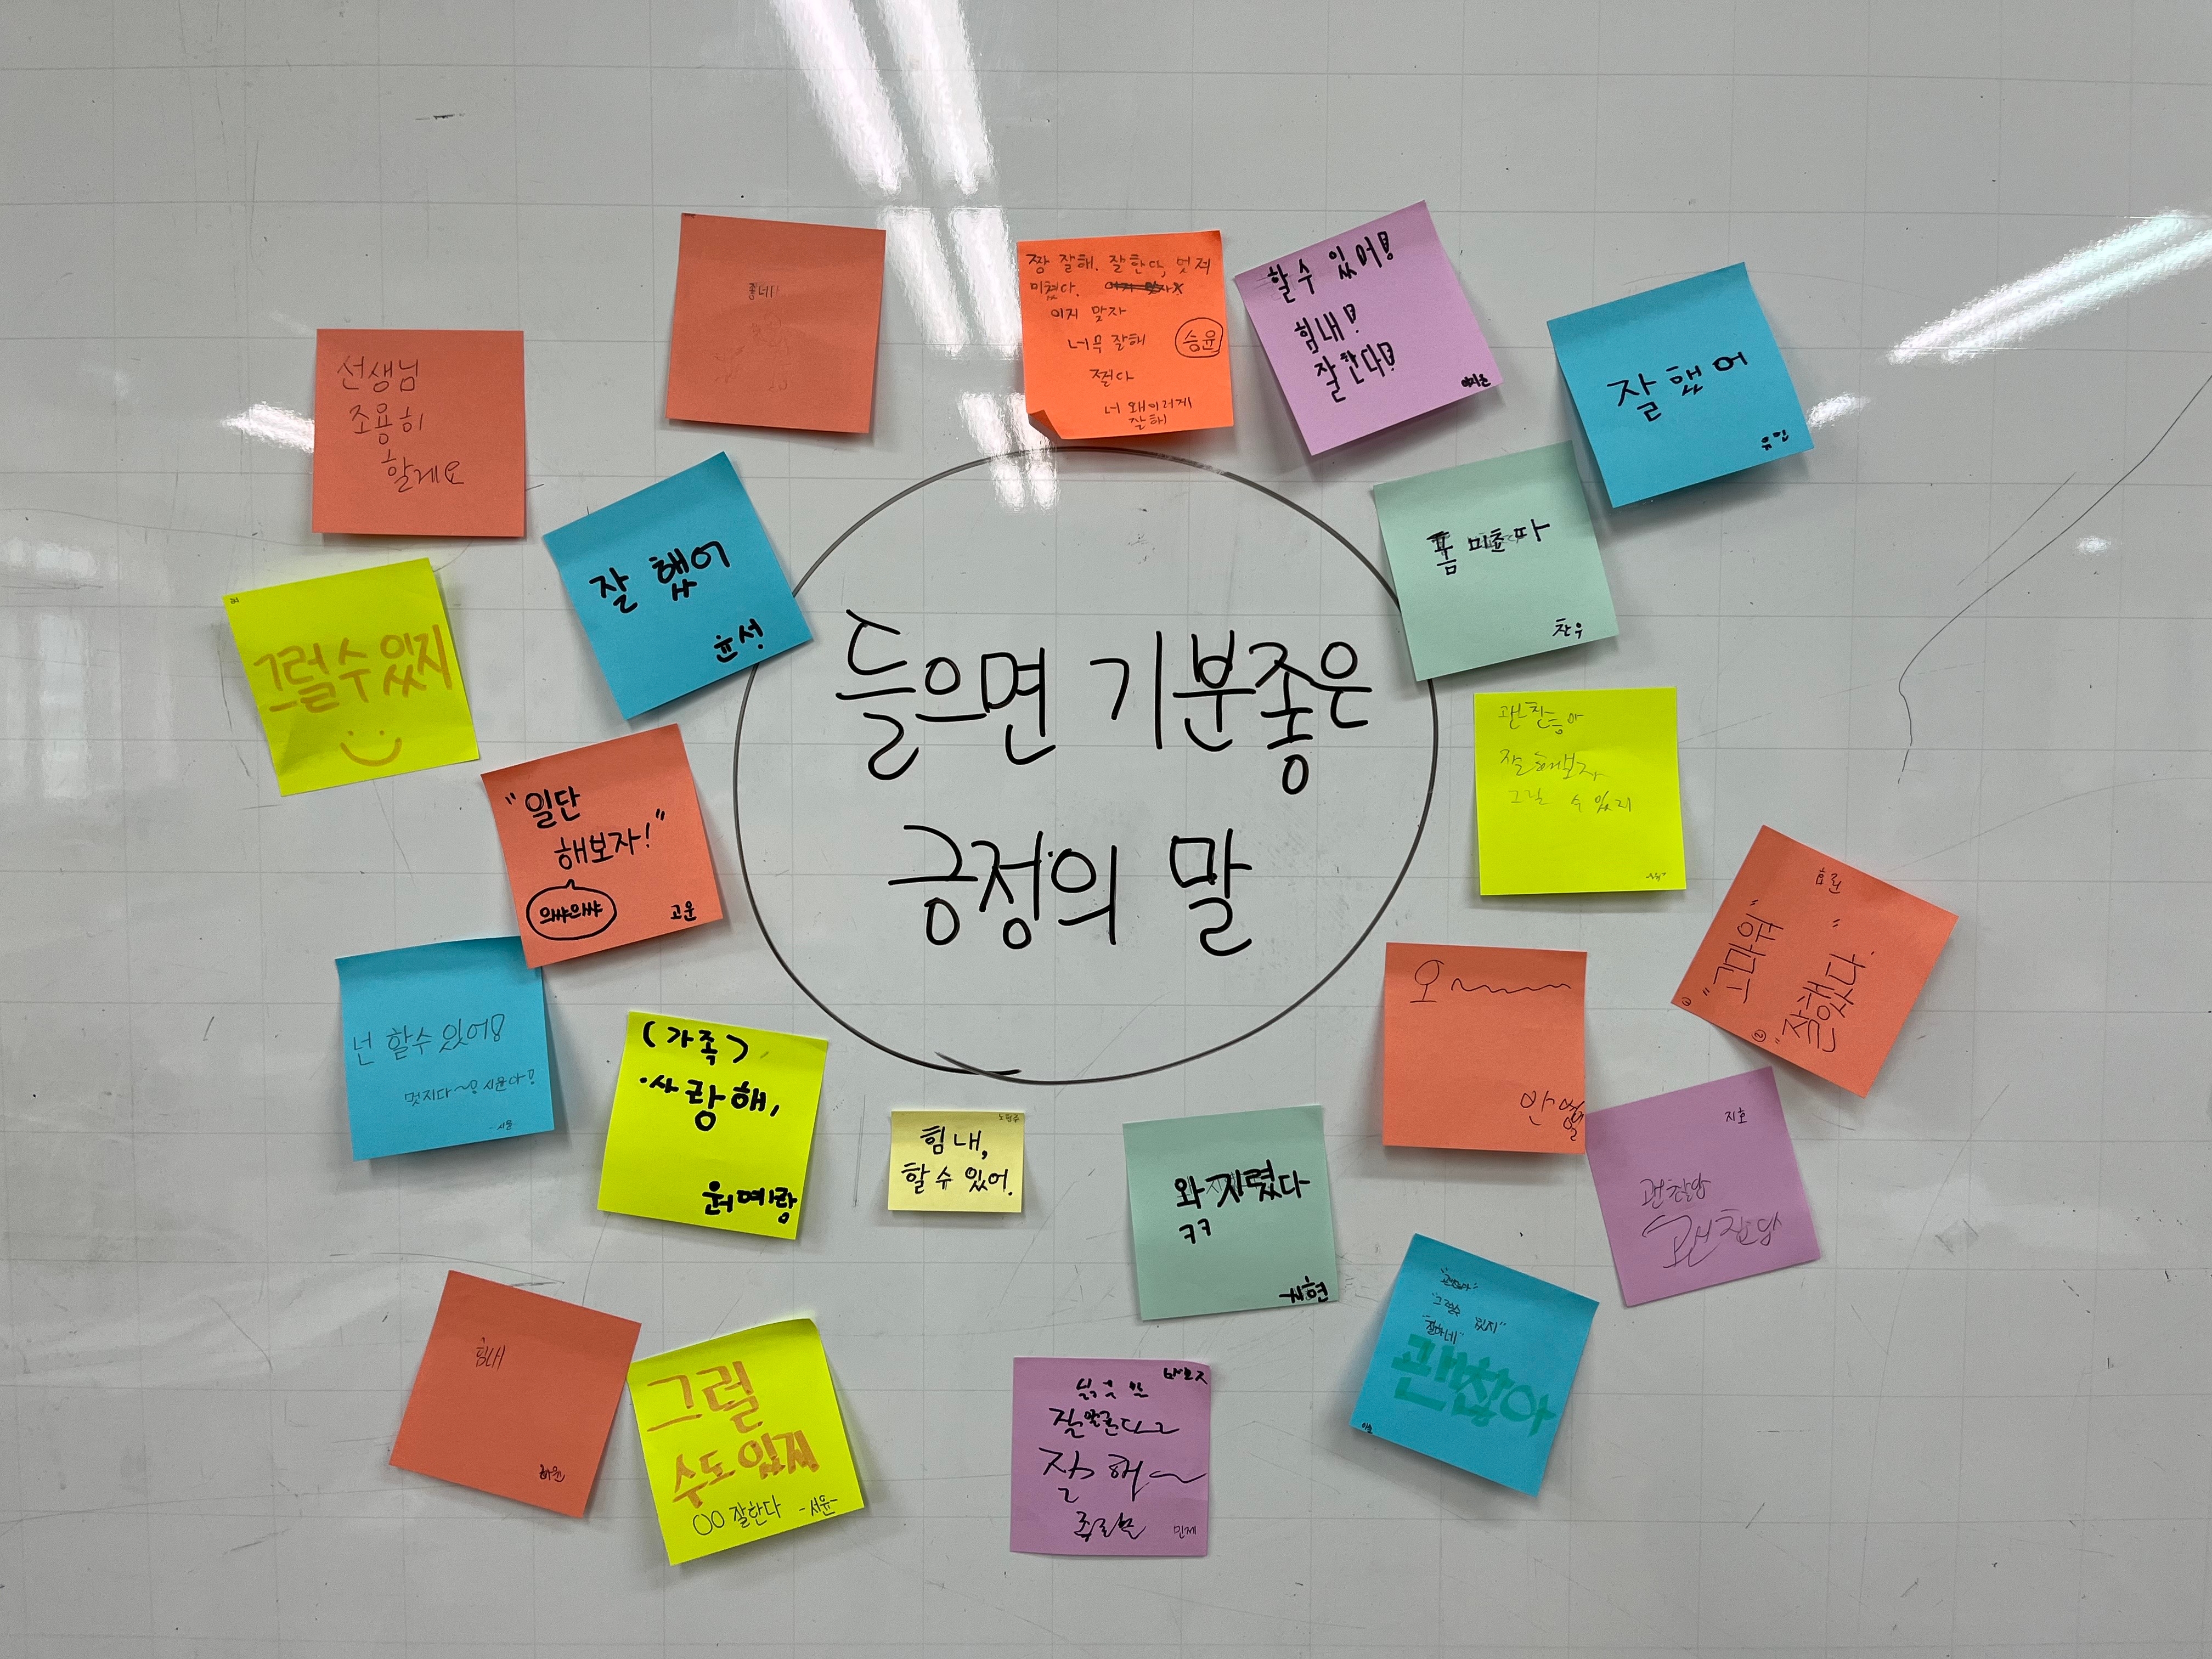 들으면 기분좋은
긍정의 말
선생님
조용히
할게요
좋네!
짱 잘해. 잘한다, 멋져
미쳤다.
이지 맞자
너무 잘해
승윤
쩐다
너 왜이러게
잘해
할수 있어!
힘내!
잘한다!
잘했어
유민
그럴수있지
잘 했어
윤성
폼 미쵸따
찬우
"일단
해보자!"
으쌰으쌰
고운
괜찮아
잘해보자
그럴 수 있지
효린
① "고마워"
② "잘했다."
넌 할수 있어!
멋지다~! 시윤아!
-시윤-
(가족)
사랑해,
원예랑
힘내,
할수 있어.
오~~~~
와 지렸다
ㅋㅋ
시현
지호
괜찮아
괜찮아
힘내
하윤
그럴
수도있지
○○ 잘한다 -서윤-
잘해~
민제
"괜찮아"
"그럴수 있지"
"잘하네"
괜찮아